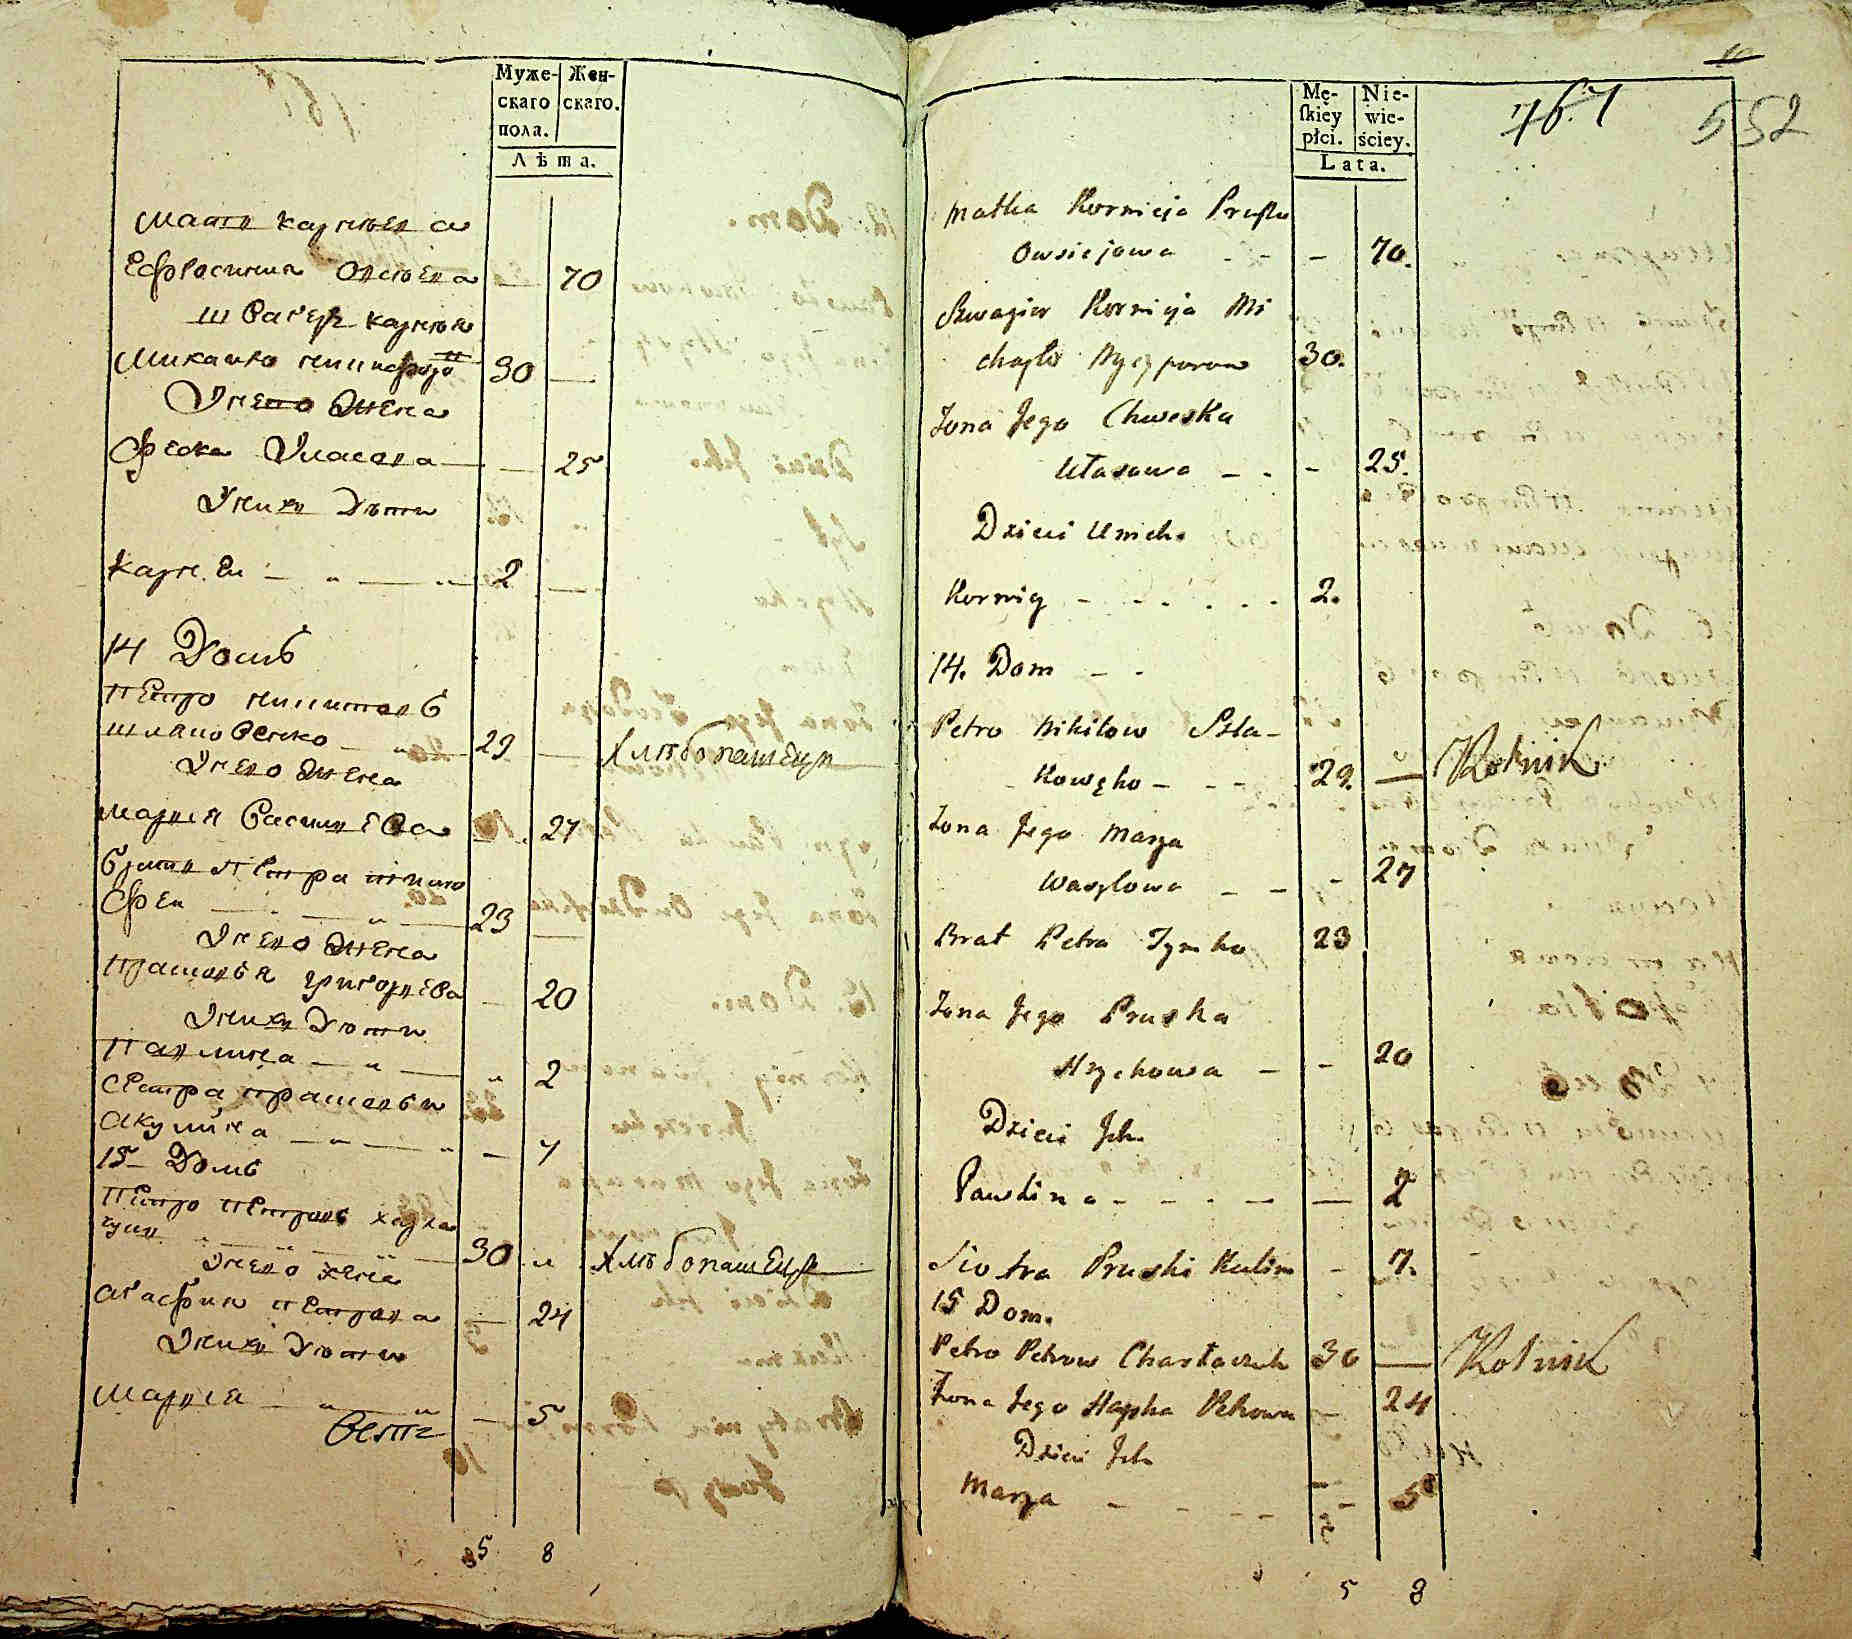 Муже-
скаго
пола.
Жен-
скаго.
Лѣта.
мати карнѣя
Ефросиния Овсѣева — 70
швагеръ карнѣя
Михайло никифоро 30 —
Унего жена
Феска Уласова — — 25
Унихъ Дѣти
карнѣй — „ — „ 2 —
14 Домъ
Петро никитовъ
шляховенко — „ — 29 — хлѣбопашецъ
Унего жена
мария василева 27
братъ Петра тимо
фей — „ — 23 —
Унего жена
Прасковья григорева — 20
Унихъ Дѣти
Павлина — „ — „ 2
сестра прасковьи
акулина — „ — „ — 7
15 Домъ
Петро Петровъ харла
чукъ „ — „ — „ — 30 „ хлѣбопашецъ
Унего жена
агафия Петрова — 24
Унихъ Дѣти
мария — „ — „ — 5
5 8
Mę-
skiey
płci.
Nie-
wie-
ściey.
Lata.
167
552
Matka Kornieja Pruska
Owsiejowa - - - 70.
Szwagier Kornieja Mi
chayło Nyczyporow 30.
Żona Jego Chweska
Ułasowa - - - 25.
Dzieci Unich
Korniy - - - . . - 2.
14. Dom - -
Petro Nikitow Szla-
kowęko - - - - 29. — Rolnik
Żona Jego Marya
Wasylowa - - - 27
Brat Petra Tymko 23
Żona Jego Pruska
Hrychowa - - 20
Dzieci Ich
Pawlina - - - - — — 2
Siostra Pruski Kulina - 7.
15 Dom.
Petro Petrow Charłaczuk 30 — Rolnik
Żona Jego Hapka Petrowa - 24
Dzieci Ich
Marya - - - - - 5
5 8